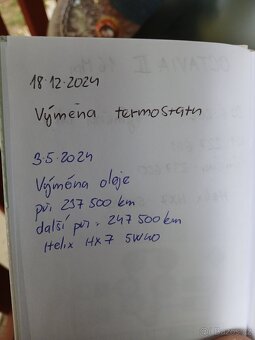 18.12.2024
Výměna termostatu
3.5.2024
Výměna oleje
při 237 500 km
další při. 247 500 km
Helix HX7 5W40